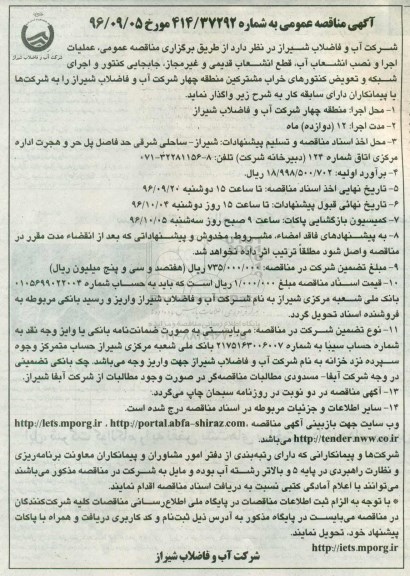 آگهی مناقصه عمومی به شماره ۴۱۴/۳۷۲۹۲ مورخ ۹۶/۰۹/۰۵
شرکت آب و فاضلاب شیراز
شرکت آب و فاضلاب شیراز در نظر دارد از طریق برگزاری مناقصه عمومی، عملیات
اجرا و نصب انشعاب آب، قطع انشعاب قدیمی و غیرمجاز، جابجایی کنتور و اجرای
شبکه و تعویض کنتورهای خراب مشترکین منطقه چهار شرکت آب و فاضلاب شیراز را به شرکت‌ها
یا پیمانکاران دارای سابقه کار به شرح زیر واگذار نماید.
۱- محل اجرا: منطقه چهار شرکت آب و فاضلاب شیراز
۲- مدت اجرا: ۱۲ (دوازده) ماه
۳- محل اخذ اسناد مناقصه و تسلیم پیشنهادات: شیراز- ساحلی شرقی حد فاصل پل حر و هجرت اداره
مرکزی اتاق شماره ۱۲۳ (دبیرخانه شرکت) تلفن: ۸-۳۲۲۸۱۱۵۶-۰۷۱
۴- برآورد اولیه: ۱۸/۹۹۸/۵۰۰/۷۰۲ ریال
۵- تاریخ نهایی اخذ اسناد مناقصه: تا ساعت ۱۵ دوشنبه ۹۶/۰۹/۲۰
۶- تاریخ نهائی قبول پیشنهادات: تا ساعت ۱۵ روز دوشنبه ۹۶/۱۰/۰۴
۷- کمیسیون بازگشایی پاکات: ساعت ۹ صبح روز سه‌شنبه ۹۶/۱۰/۰۵
۸- به پیشنهادهای فاقد امضاء، مشروط، مخدوش و پیشنهاداتی که بعد از انقضاء مدت مقرر در
مناقصه واصل شود مطلقاً ترتیب اثر داده نخواهد شد.
۹- مبلغ تضمین شرکت در مناقصه: ۷۳۵/۰۰۰/۰۰۰ ریال (هفتصد و سی و پنج میلیون ریال)
۱۰- قیمت اسناد مناقصه مبلغ ۱/۰۰۰/۰۰۰ ریال است که باید به حساب شماره ۰۱۰۵۶۹۹۰۲۲۰۰۳
بانک ملی شعبه مرکزی شیراز به نام شرکت آب و فاضلاب شیراز واریز و رسید بانکی مربوطه به
فروشنده اسناد تحویل گردد.
۱۱- نوع تضمین شرکت در مناقصه: می‌بایستی به صورت ضمانت‌نامه بانکی یا واریز وجه نقد به
شماره حساب سیبا به شماره ۲۱۷۵۱۶۳۰۰۶۰۰۷ بانک ملی شعبه مرکزی شیراز حساب متمرکز وجوه
سپرده نزد خزانه به نام شرکت آب و فاضلاب شیراز جهت واریز وجه می‌باشد. چک بانکی تضمینی
در وجه شرکت آبفا- مسدودی مطالبات مناقصه‌گر در صورت وجود مطالبات از شرکت آبفا شیراز.
۱۳- آگهی مناقصه در دو نوبت در روزنامه سبحان چاپ می‌گردد.
۱۴- سایر اطلاعات و جزئیات مربوطه در اسناد مناقصه درج شده است.
وب سایت جهت بازبینی آگهی مناقصه http://iets.mporg.ir ، http://portal.abfa-shiraz.com،
http://tender.nww.co.ir می‌باشد.
شرکت‌ها و پیمانکارانی که دارای رتبه‌بندی از دفتر امور مشاوران و پیمانکاران معاونت برنامه‌ریزی
و نظارت راهبردی در پایه ۵ و بالاتر رشته آب بوده و مایل به شرکت در مناقصه مذکور می‌باشند
می‌توانند با اعلام آمادگی کتبی نسبت به دریافت اسناد مناقصه اقدام نمایند.
* با توجه به الزام ثبت اطلاعات مناقصات در پایگاه ملی اطلاع‌رسانی مناقصات کلیه شرکت‌کنندگان
در مناقصه می‌بایست در پایگاه مذکور به آدرس ذیل ثبت‌نام و کد کاربری دریافت و همراه با پاکات
پیشنهاد خود، تحویل نمایند.
http://iets.mporg.ir
شرکت آب و فاضلاب شیراز